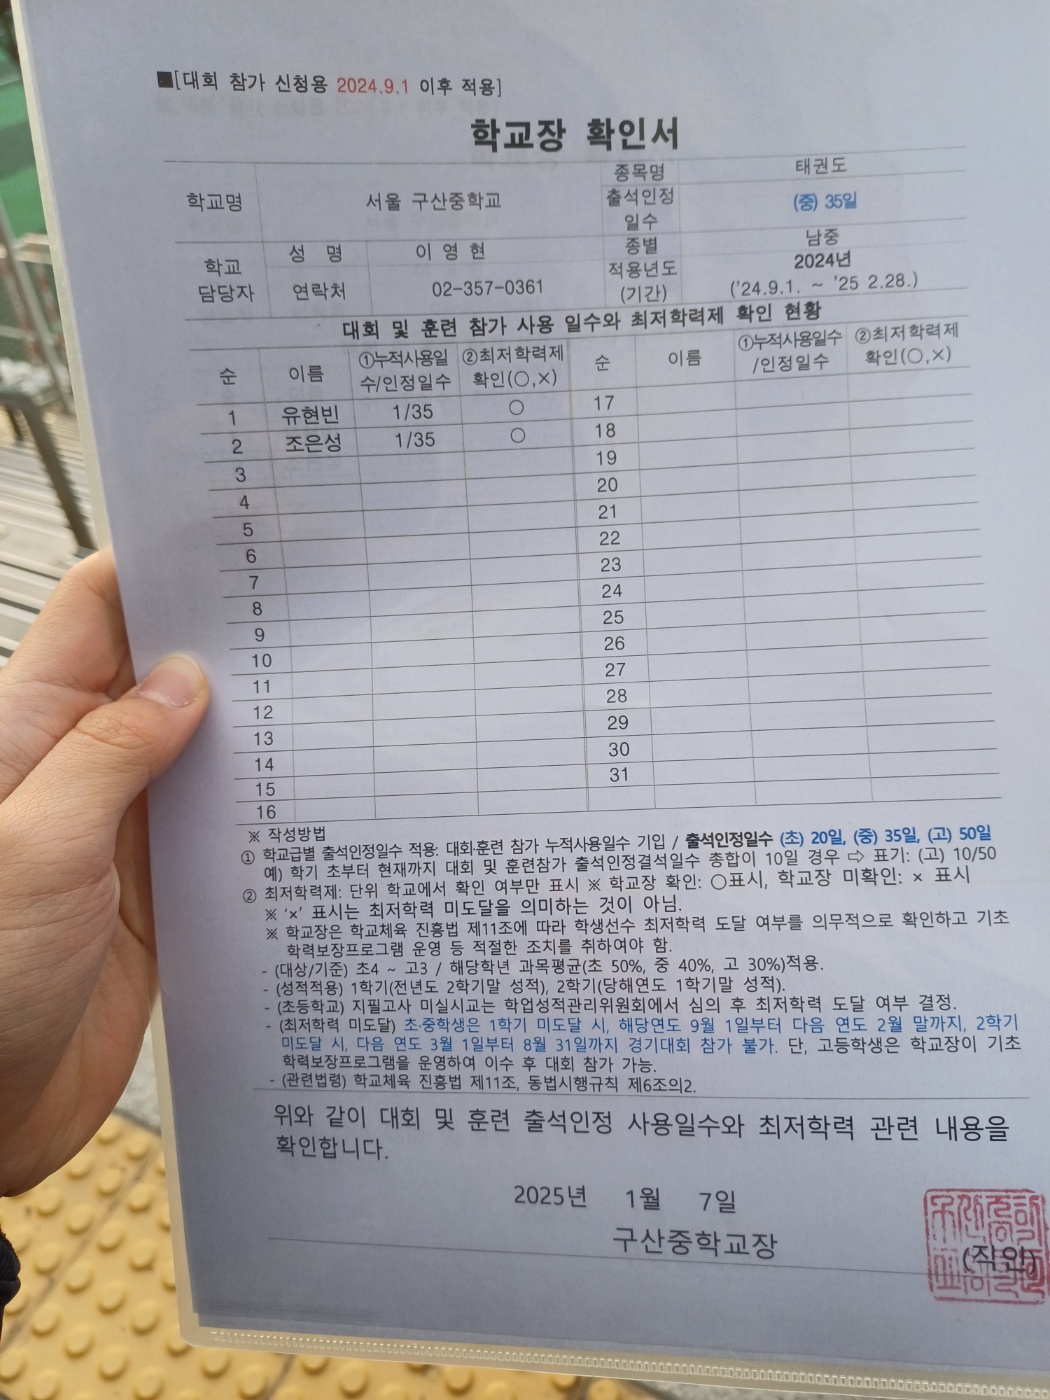 ■[대회 참가 신청용 2024.9.1 이후 적용]
학교장 확인서
학교명 서울 구산중학교 종목명 태권도
출석인정 일수 (중) 35일
학교 담당자 성 명 이 영 현 종별 남중
연락처 02-357-0361 적용년도 (기간) 2024년 ('24.9.1. ~ '25 2.28.)
대회 및 훈련 참가 사용 일수와 최저학력제 확인 현황
순 이름 ①누적사용일수/인정일수 ②최저학력제 확인(○,×) 순 이름 ①누적사용일수/인정일수 ②최저학력제 확인(○,×)
1 유현빈 1/35 ○ 17
2 조은성 1/35 ○ 18
3 19
4 20
5 21
6 22
7 23
8 24
9 25
10 26
11 27
12 28
13 29
14 30
15 31
16
※ 작성방법
① 학교급별 출석인정일수 적용: 대회·훈련 참가 누적사용일수 기입 / 출석인정일수 (초) 20일, (중) 35일, (고) 50일
예) 학기 초부터 현재까지 대회 및 훈련참가 출석인정결석일수 총합이 10일 경우 ⇨ 표기: (고) 10/50
② 최저학력제: 단위 학교에서 확인 여부만 표시 ※ 학교장 확인: ○표시, 학교장 미확인: × 표시
※ '×' 표시는 최저학력 미도달을 의미하는 것이 아님.
※ 학교장은 학교체육 진흥법 제11조에 따라 학생선수 최저학력 도달 여부를 의무적으로 확인하고 기초
학력보장프로그램 운영 등 적절한 조치를 취하여야 함.
- (대상/기준) 초4 ~ 고3 / 해당학년 과목평균(초 50%, 중 40%, 고 30%)적용.
- (성적적용) 1학기(전년도 2학기말 성적), 2학기(당해연도 1학기말 성적).
- (초등학교) 지필고사 미실시교는 학업성적관리위원회에서 심의 후 최저학력 도달 여부 결정.
- (최저학력 미도달) 초·중학생은 1학기 미도달 시, 해당연도 9월 1일부터 다음 연도 2월 말까지, 2학기
미도달 시, 다음 연도 3월 1일부터 8월 31일까지 경기대회 참가 불가. 단, 고등학생은 학교장이 기초
학력보장프로그램을 운영하여 이수 후 대회 참가 가능.
- (관련법령) 학교체육 진흥법 제11조, 동법시행규칙 제6조의2.
위와 같이 대회 및 훈련 출석인정 사용일수와 최저학력 관련 내용을
확인합니다.
2025년 1월 7일
구산중학교장 (직인)